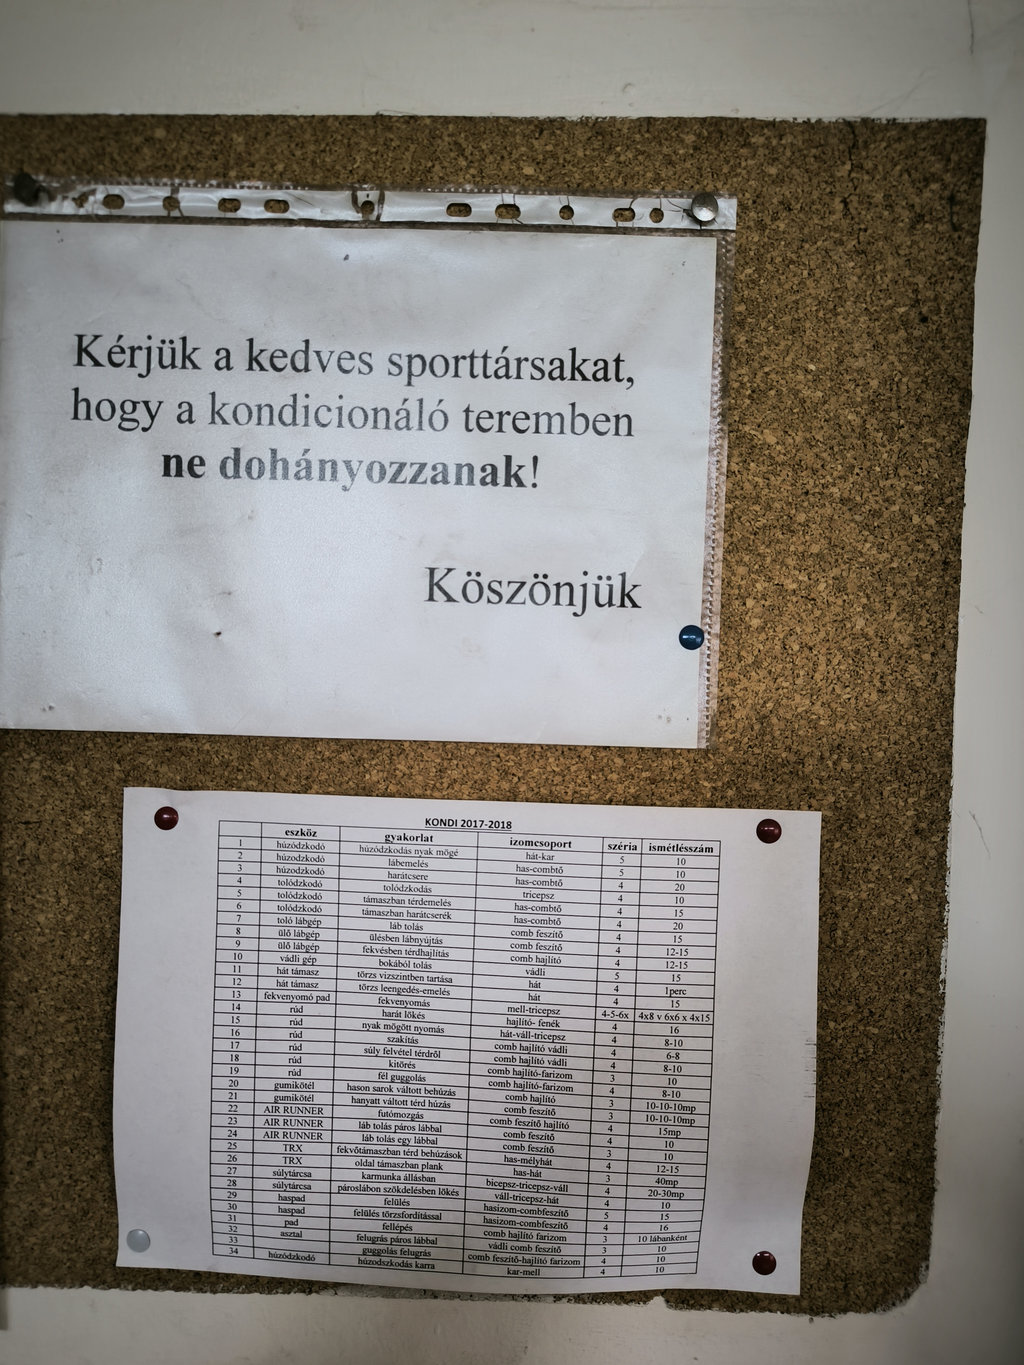 Kérjük a kedves sporttársakat,
hogy a kondicionáló teremben
ne dohányozzanak!
Köszönjük
KONDI 2017-2018
eszköz gyakorlat izomcsoport széria ismétlésszám
1 húzódzkodó húzódzkodás nyak mögé hát-kar 5 10
2 húzodzkodó lábemelés has-combtő 5 10
3 húzodzkodó harátcsere has-combtő 4 20
4 tolódzkodó tolódzkodás tricepsz 4 10
5 tolódzkodó támaszban térdemelés has-combtő 4 15
6 tolódzkodó támaszban harátcserék has-combtő 4 20
7 toló lábgép láb tolás comb feszítő 4 15
8 ülő lábgép ülésben lábnyújtás comb feszítő 4 12-15
9 ülő lábgép fekvésben térdhajlítás comb hajlító 4 12-15
10 vádli gép bokából tolás vádli 5 15
11 hát támasz törzs vizszintben tartása hát 4 1perc
12 hát támasz törzs leengedés-emelés hát 4 15
13 fekvenyomó pad fekvenyomás mell-tricepsz 4-5-6x 4x8 v 6x6 x 4x15
14 rúd harát lökés hajlító- fenék 4 16
15 rúd nyak mögött nyomás hát-váll-tricepsz 4 8-10
16 rúd szakítás comb hajlító vádli 4 6-8
17 rúd súly felvétel térdről comb hajlító vádli 4 8-10
18 rúd kitörés comb hajlító-farizom 3 10
19 rúd fél guggolás comb hajlító-farizom 4 8-10
20 gumikötél hason sarok váltott behúzás comb hajlító 3 10-10-10mp
21 gumikötél hanyatt váltott térd húzás comb feszítő 3 10-10-10mp
22 AIR RUNNER futómozgás comb feszítő hajlító 4 15mp
23 AIR RUNNER láb tolás páros lábbal comb feszítő 4 10
24 AIR RUNNER láb tolás egy lábbal comb feszítő 3 10
25 TRX fekvőtámaszban térd behúzások has-mélyhát 4 12-15
26 TRX oldal támaszban plank has-hát 3 40mp
27 súlytárcsa karmunka állásban bicepsz-tricepsz-váll 4 20-30mp
28 súlytárcsa párosláb­on szökdelésben lökés váll-tricepsz-hát 4 10
29 haspad felülés hasizom-combfeszítő 5 15
30 haspad felülés törzsfordítással hasizom-combfeszítő 4 16
31 pad fellépés comb hajlító farizom 3 10 lábanként
32 asztal felugrás páros lábbal vádli comb feszítő 3 10
33 guggolás felugrás comb feszítő-hajlító farizom 4 10
34 húzódzkodó húzodszkodás karra kar-mell 4 10